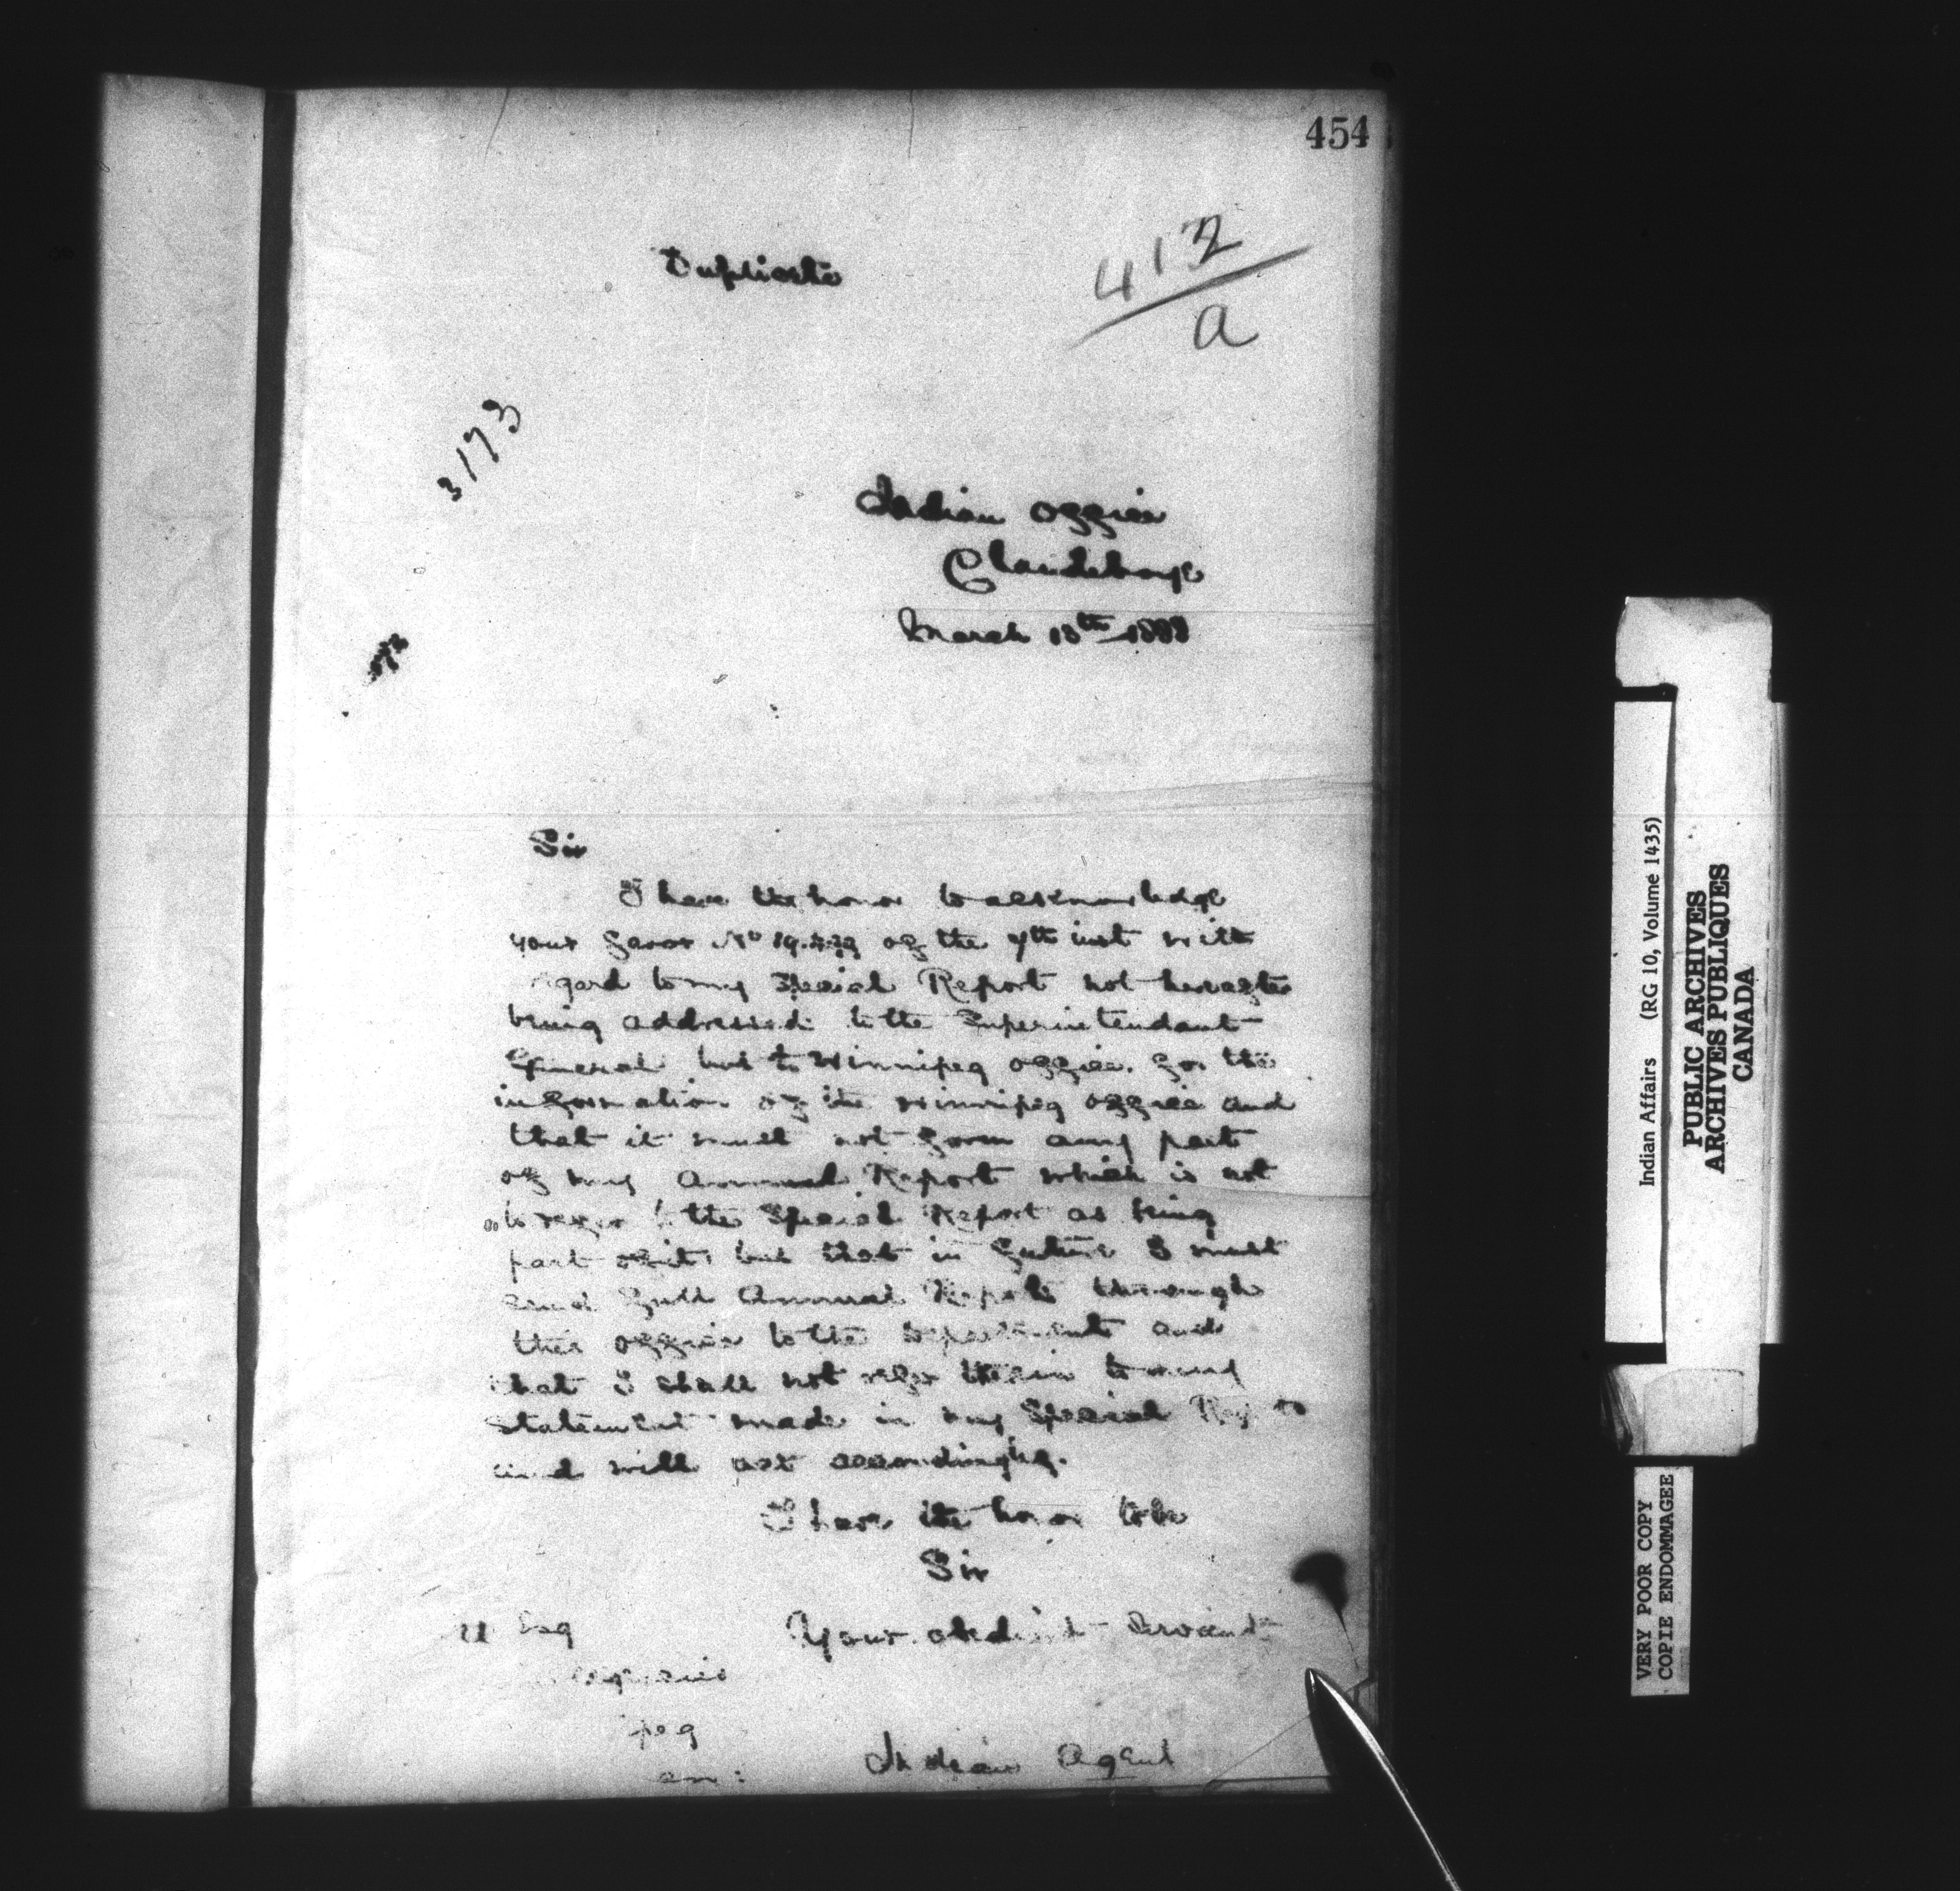 454
Duplicate
412
a
3173
Indian Office
Clandeboye
March 13th 1888
Sir
I have the honor to acknowledge
your favor No of the 7th inst with
regard to my Special Report not hereafter
being addressed to the Superintendant
General but to Winnipeg office. for the
information of the Winnipeg office and
that it must not form any part
of my Annual Report which is not
to refer to the Special Report as being
part of it, but that in future I must
send full Annual Report through
the office to the Department and
that I shall not refer therein to any
statement made in my Special Report
and will act accordingly.
I have the honor to be
Sir
Your obedient Servant
Esq
peg
Indian Agent
Indian Affairs (RG 10, Volume 1435)
PUBLIC ARCHIVES
ARCHIVES PUBLIQUES
CANADA
VERY POOR COPY
COPIE ENDOMMAGEE